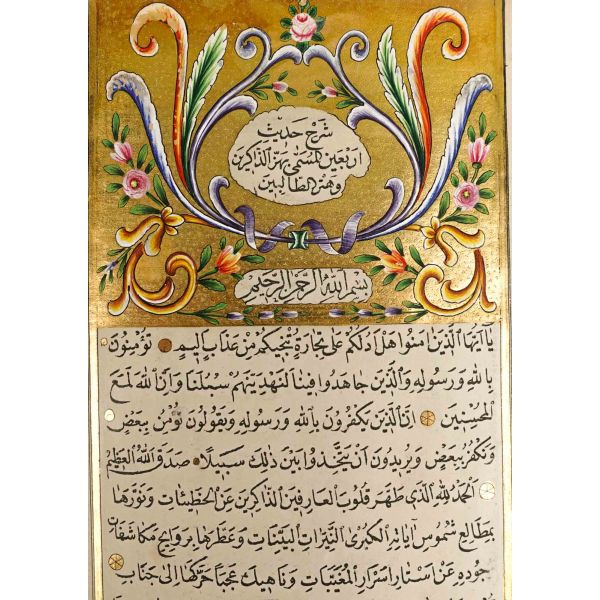 شرح حديث
اربعين المسمى بهز الذاكرين
وهنز الطالبين
بسم الله الرحمن الرحيم
يا ايها الذين امنوا هل ادلكم على تجارة تنجيكم من عذاب اليم تؤمنون
بالله ورسوله والذين جاهدوا فينا لنهدينهم سبلنا وان الله لمع
المحسنين ان الذين يكفرون بالله ورسوله ويقولون نؤمن ببعض
ونكفر ببعض ويريدون ان يتخذوا بين ذلك سبيلا صدق الله العظيم
الحمد لله الذى طهر قلوب العارفين الذاكرين عن الخطيئات ونورها
بمطالع شموس اياته الكبرى النيرات البينات وعطرها بروايح مكاشفات
جوده عن استار اسرار المغيبات وناهيك عجبا حركها الى جناب